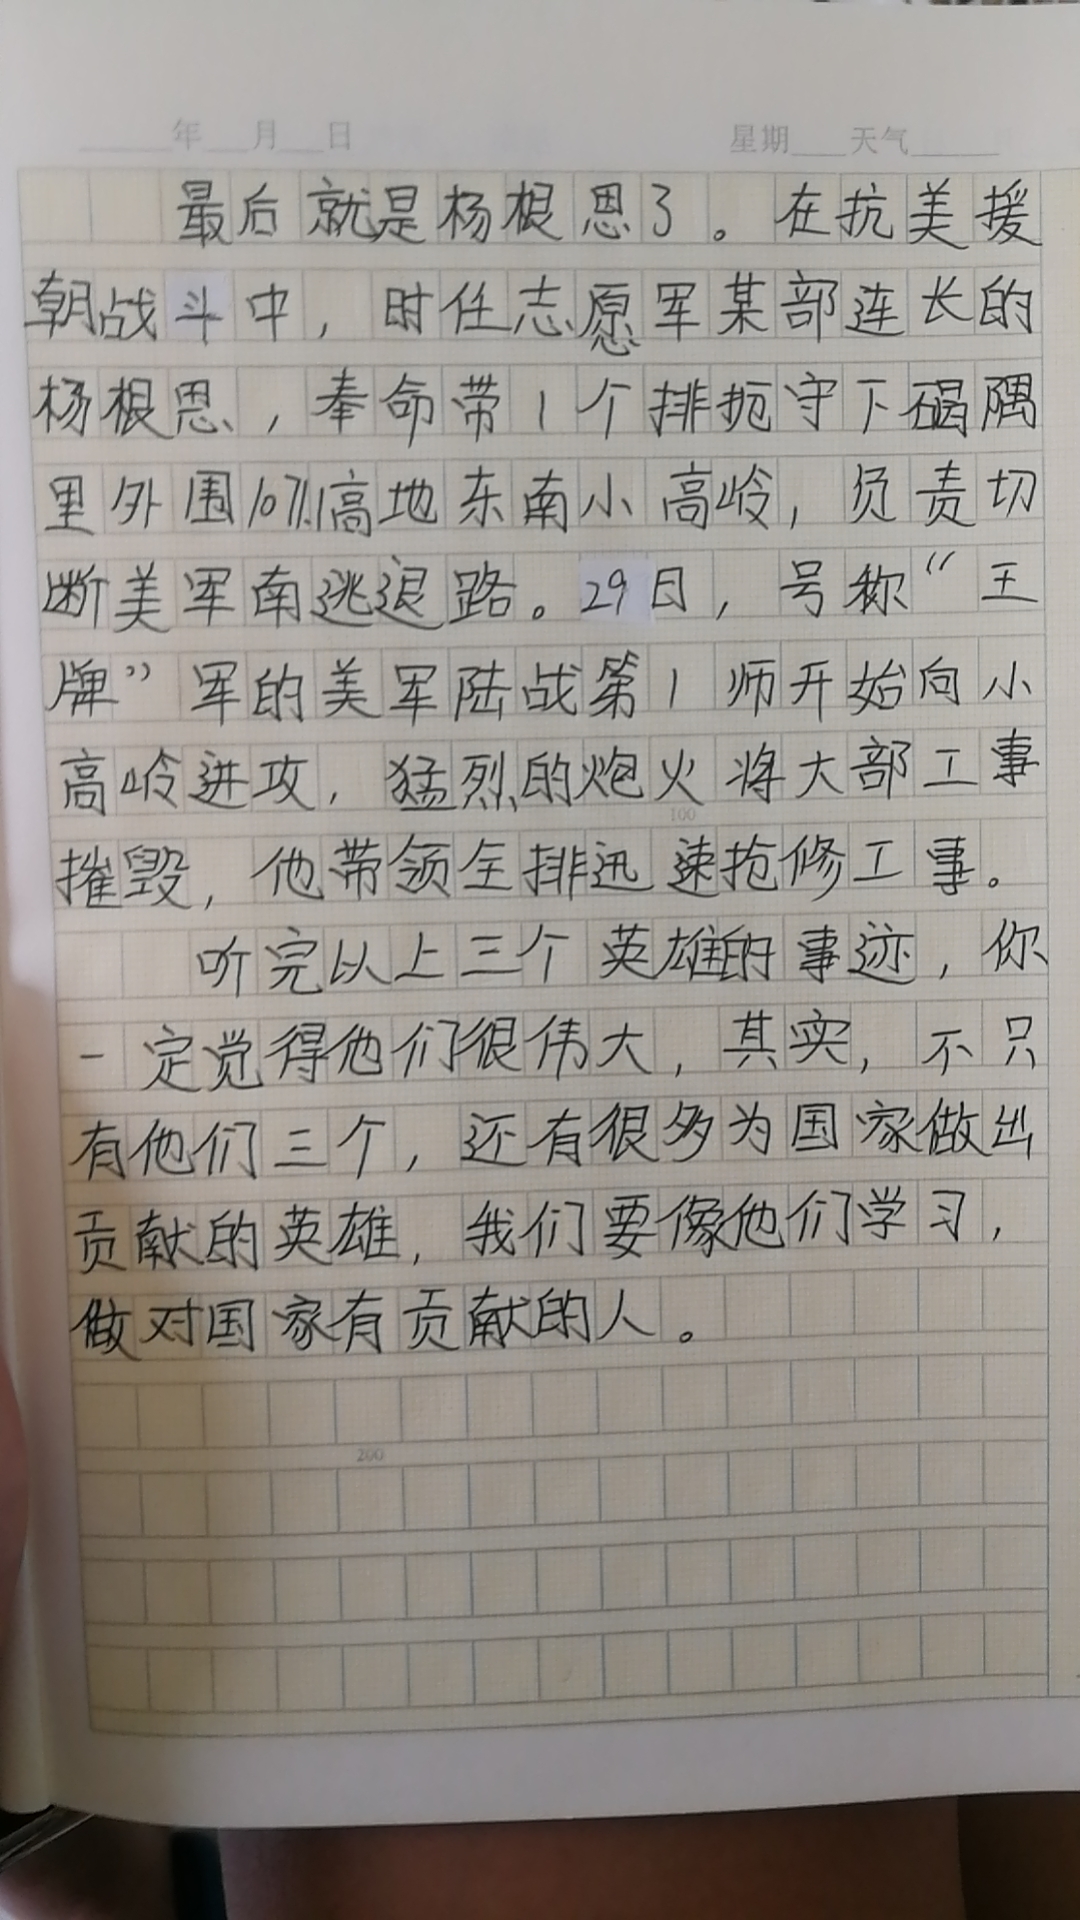 年 月 日 星期 天气
最后就是杨根思了。在抗美援
朝战斗中，时任志愿军某部连长的
杨根思，奉命带1个排扼守下碣隅
里外围1071.1高地东南小高岭，负责切
断美军南逃退路。29日，号称“王
牌”军的美军陆战第1师开始向小
高岭进攻，猛烈的炮火将大部工事
摧毁，他带领全排迅速抢修工事。
100
听完以上三个英雄的事迹，你
一定觉得他们很伟大，其实，不只
有他们三个，还有很多为国家做出
贡献的英雄，我们要像他们学习，
做对国家有贡献的人。
200